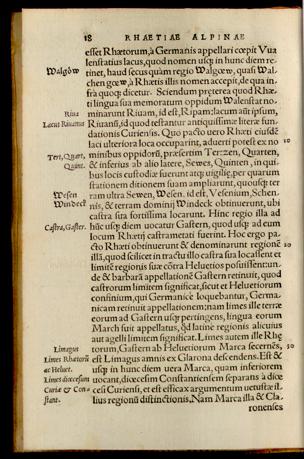 18 RHAETIAE ALPINAE
esset Rhætorum, à Germanis appellari cœpit Vua
lenstatius lacus, quod nomen usq; in hunc diem re
Walgöw tinet, haud secus quàm regio Walgœw, quasi Wal
chen gœw, à Rhætis illis nomen accepit, de qua in
frà quoq; dicetur. Sciendum præterea quod Rhæ
ti lingua sua memoratum oppidum Walenstat no-
Riua minarunt Riuam, id est, Ripam; lacum aũt ipsum,
Lacus Riuanus Riuanũ, id quod testantur antiquissimæ literæ fun-
dationis Curiensis. Quo pacto uero Rhæti eiusdẽ
laci ulteriora loca occuparint, aduerti potest ex no 10
Tertz, Quart, minibus oppidorũ, præsertim Tertzen, Quarten,
Quint. & inferius ab alio latere, Sewes, Quinten, in qui-
bus locis custodiæ fuerunt atq; uigiliæ, per quarum
stationem ditionem suam ampliarunt, quousq; ter
Wesen ram ultra Sewen, Wesen, id est, Vesenium, Schen-
Windeck nis, & terram dominij Windeck obtinuerunt, ubi
castra sua fortissima locarunt. Hinc regio illa ad
Castra, Gaster. hũc usq; diem uocatur Gastern, quod usq; ad eum
locum Rhætij castrametati fuerint. Hoc ergo pa-
cto Rhæti obtinuerunt & denominarunt regionẽ 20
illã, quod scilicet in tractu illo castra sua locassent et
limitẽ regionis suæ cõtra Heluetios posuissent: un-
de & barbarã appellationẽ Gastern retinuit, quod
castrorum limitem significat, sicut et Heluetiorum
confinium, qui Germanicè loquebantur, Germa-
nicam retinuit appellationem: nam limes ille terræ
eorum ad Gastern usq; pertingens, lingua eorum
March suit appellatus, qđ latinè regionis alicuius
aut agelli limitem significat. Limes autem ille Rhę
Limagus torum, Gastern ab Heluetiorum March secernẽs, 30
Limes Rhætorũ est Limagus amnis ex Glarona descendens. Est &
ac Heluet. usq; in hunc diem uera Marca, quam inferiorem
Limes diœcesum uocant, diœcesim Constantiensem separans à diœ
Curiæ & Con- cesi Curiensi, et est efficax argumentum uetustæ il-
stant. lius regionũ distinctionis. Nam Marca illa & Cla
ronenses